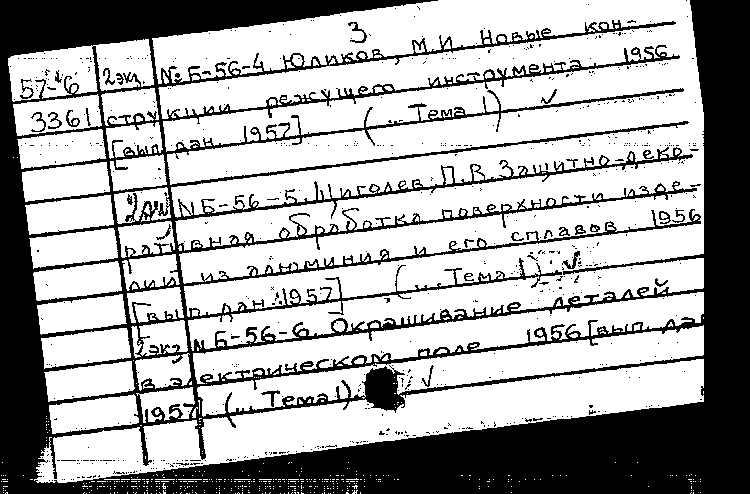 3
57-6 2экз. № Б-56-4 Юликов, М.И. Новые кон-
3361 струкции режущего инструмента. 1956
[вып. дан. 1957]. (... Тема 1). ✓
2экз N Б-56-5. Щиголев, П.В. Защитно-деко-
ративная обработка поверхности изде-
лий из алюминия и его сплавов. 1956
[вып. дан. 1957]. (... Тема 1) ✓
2экз N Б-56-6. Окрашивание деталей
в электрическом поле 1956 [вып. дан
1957]. (... Тема 1). ✓